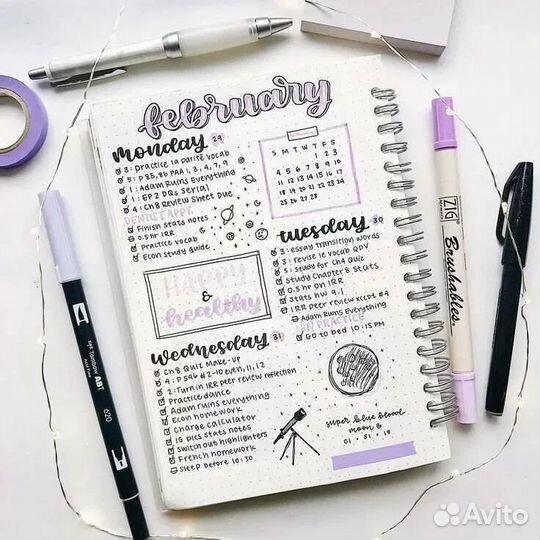 february
monday 29
3: practice la parité vocab
5: P 85, 86 PAA 1, 3, 4, 7, 9
1: Adam Ruins Everything
1: EP 2 DQs Ser(a)
4: Ch 8 Review Sheet Due
DENTIST APPT
Finish stats notes
0.5 hr IRR
Practice vocab
Econ study guide
S M T W T F S
1 2 3
4 5 6 7 8 9 10
11 12 13 14 15 16 17
18 19 20 21 22 23 24
25 26 27 28
tuesday 30
3: essay transition words
3: revise le vocab QDV
5: study for Ch 9 Quiz
Study Chapter 8 Stats
0.5 hr on IRR
Stats HW 9-1
IRR peer review xcept #4
Adam Ruins Everything
JAN PRACTICE
Go to bed 10:15 PM
HAPPY
&
healthy
wednesday 31
Ch 8 Quiz Make-up
4: P 549 #2-10 even, 11, 12
2: Turn in IRR peer review reflection
Practice dance
Adam ruins everything
Econ homework
Charge calculator
1G pics stats notes
Switch out highlighters
French homework
Sleep before 10:30
super blue blood
moon
01 • 31 • 18
ZIG
Brushables.
Tombow ABT
620
Avito